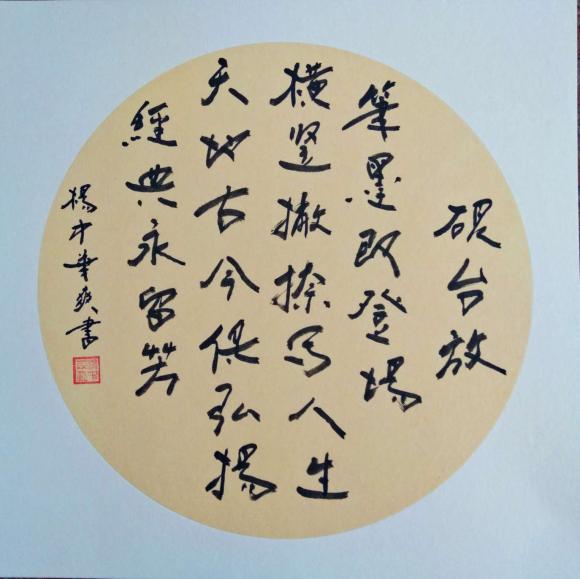 硯台放
筆墨既登場
橫竖撇捺写人生
天地古今俱弘揚
經典永留芳
楊中華爽書